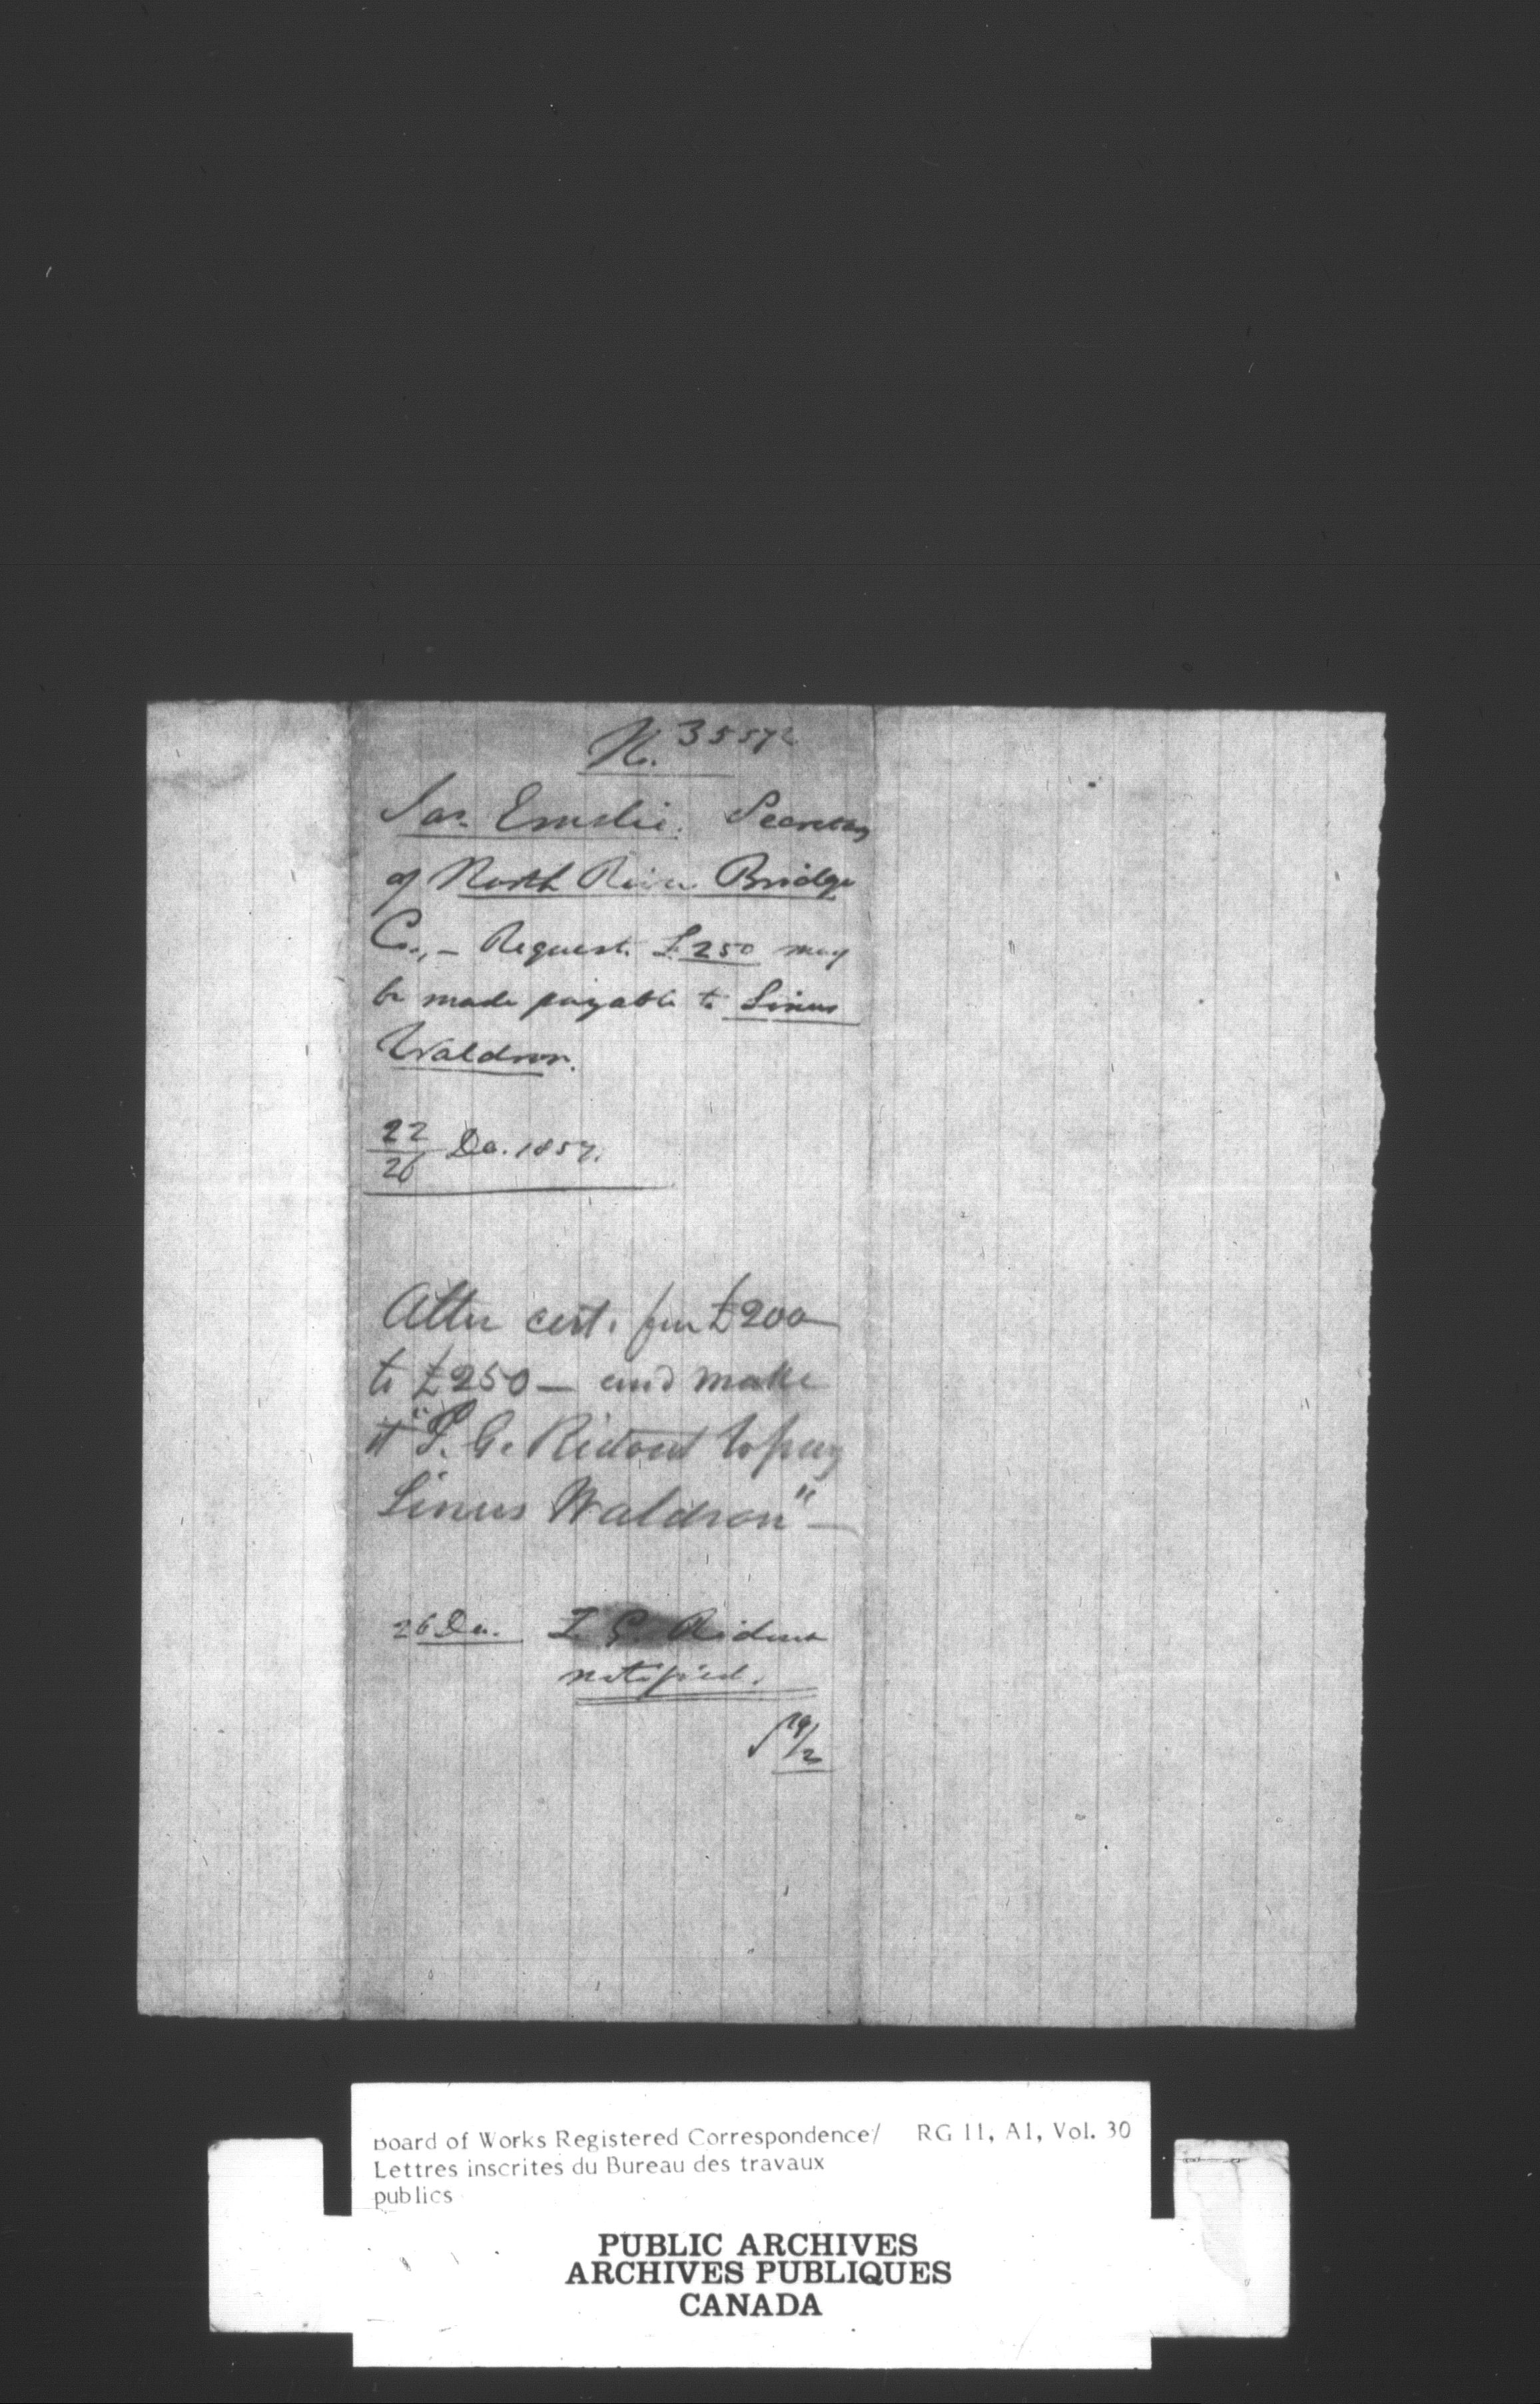 No. 35572
Jas. Emslie. Secretary
of North River Bridge
Co., – Requests £250 may
be made payable to Linus
Waldron.
22
26 De. 1857.
Alter cert. from £200
to £250 — and make
it "T. G. Ridout to pay
Linus Waldron" —
26 De. T. G. Ridout
notified.
19/2
Board of Works Registered Correspondence/ RG 11, A1, Vol. 30
Lettres inscrites du Bureau des travaux
publics
PUBLIC ARCHIVES
ARCHIVES PUBLIQUES
CANADA